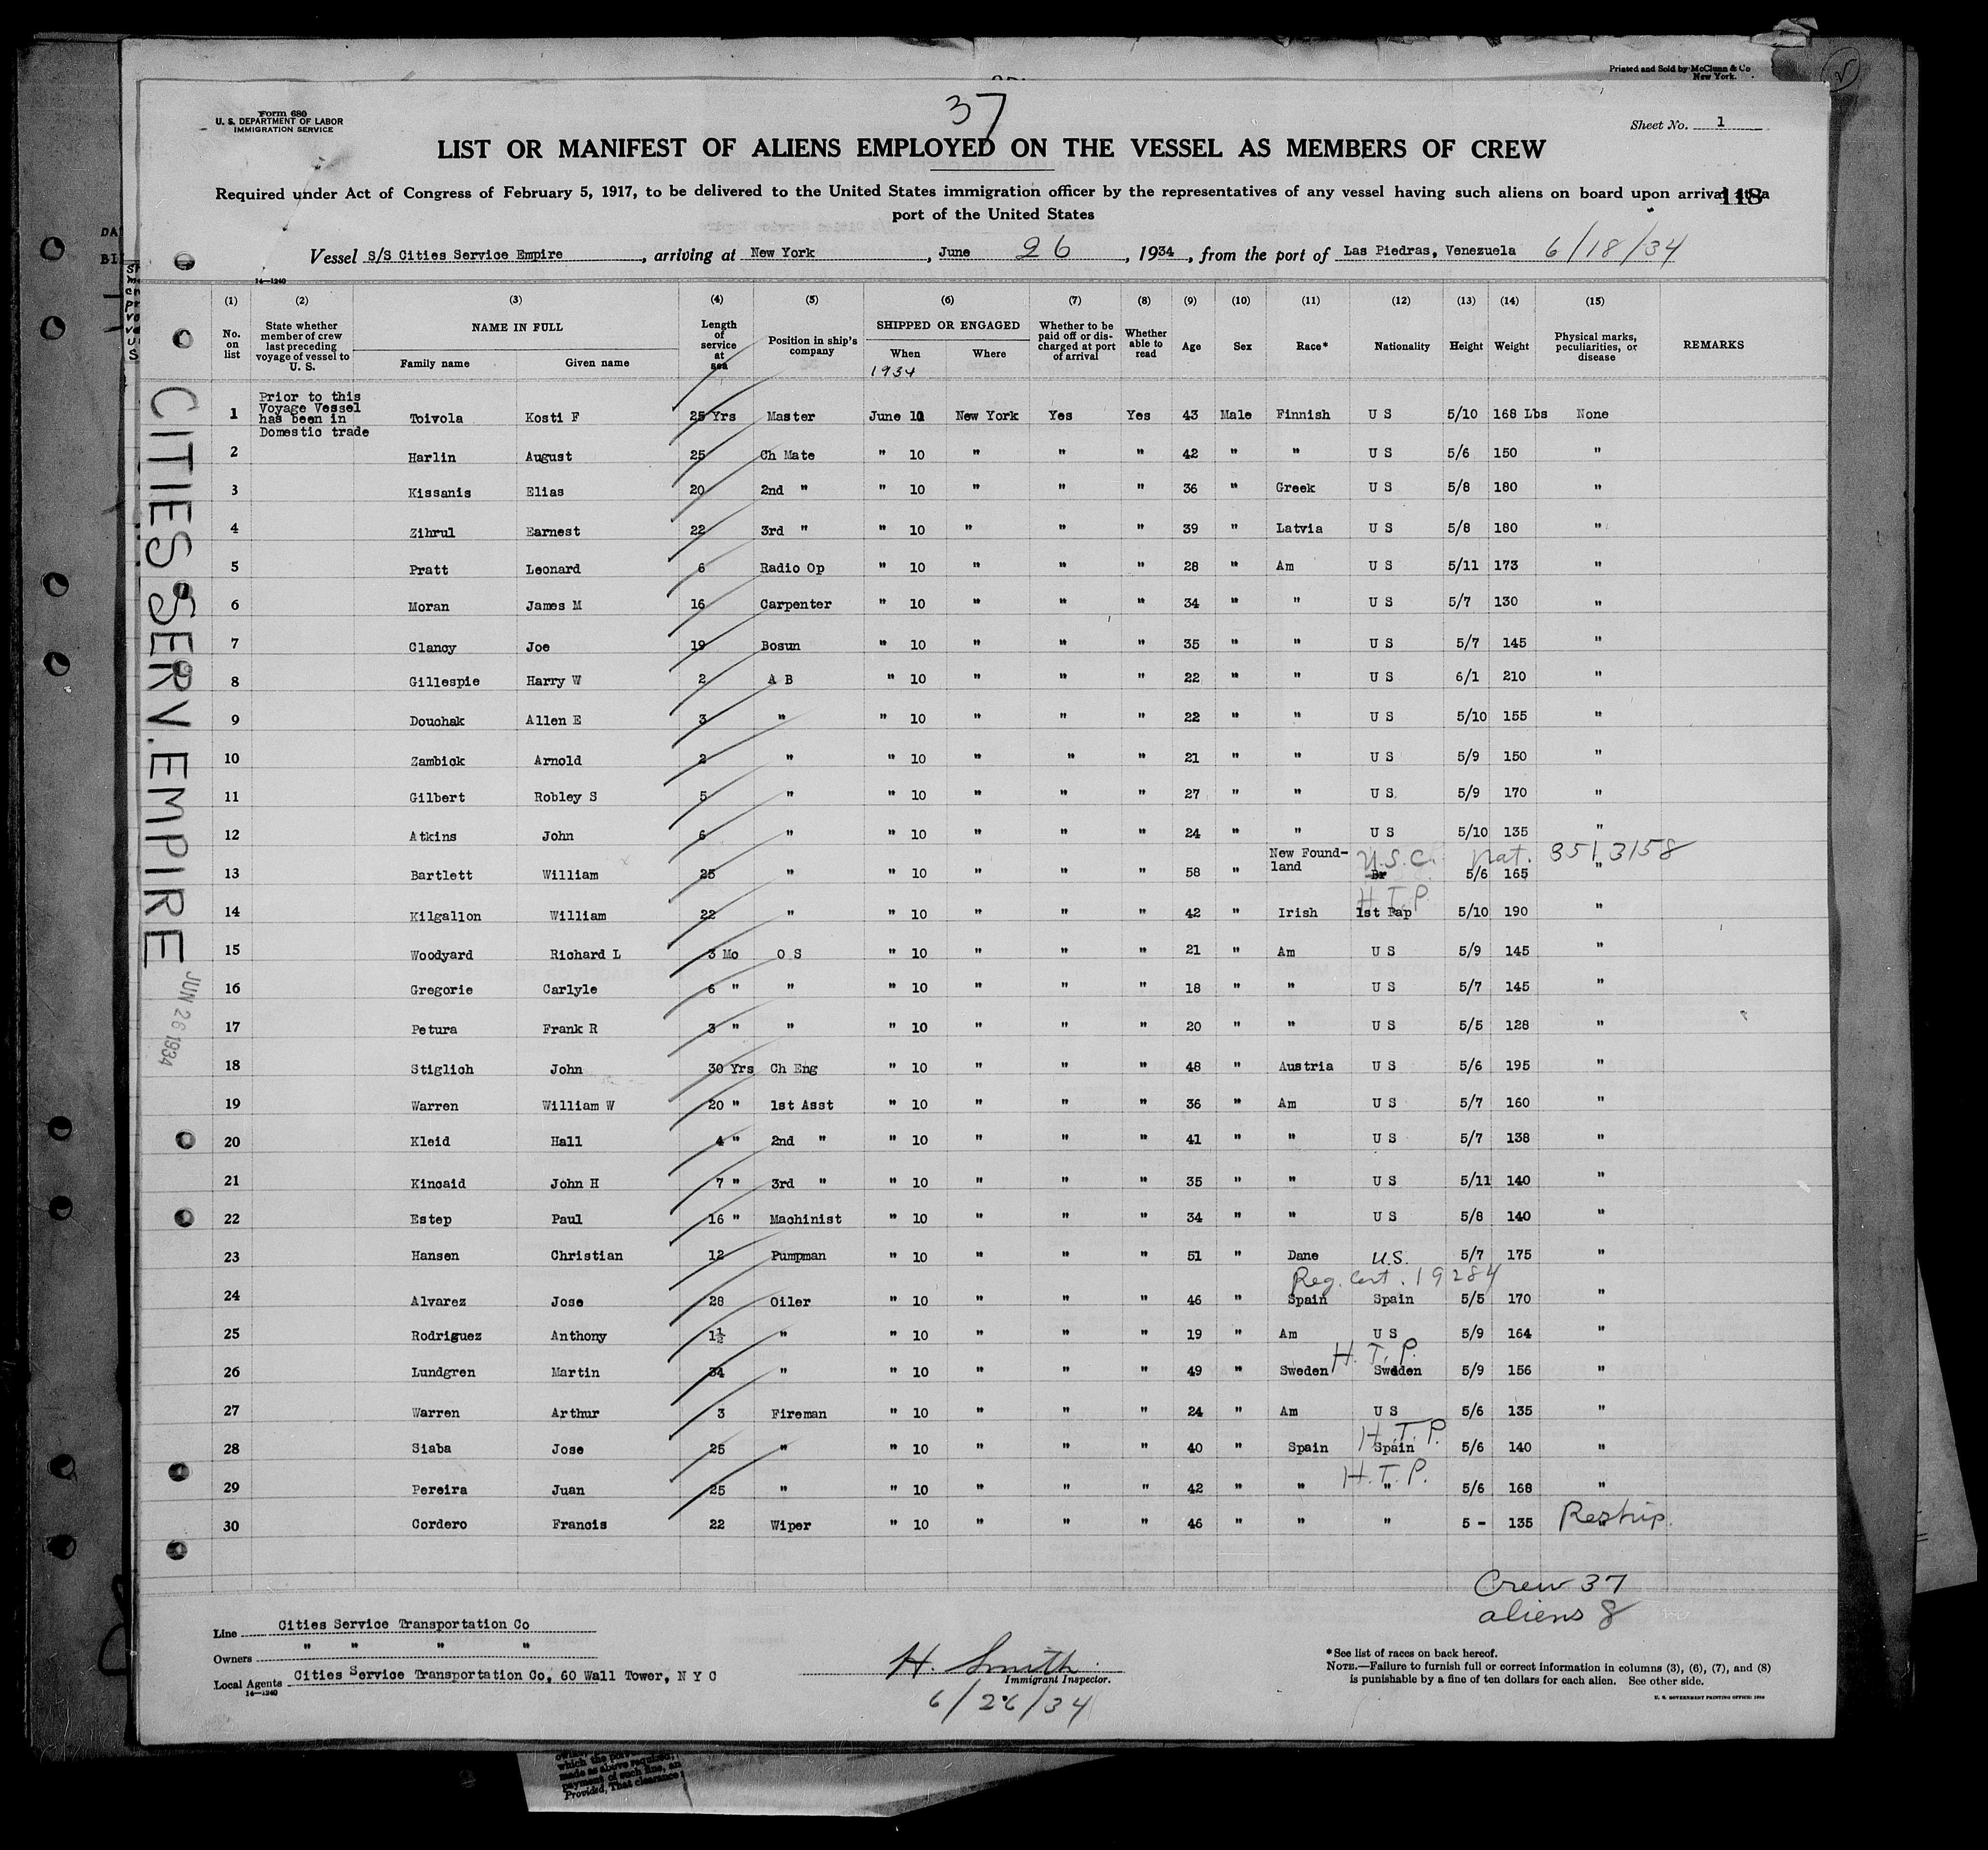 Printed and Sold by McClunn & Co
New York.
37
Form 680
U. S. DEPARTMENT OF LABOR
IMMIGRATION SERVICE
Sheet No. 1
LIST OR MANIFEST OF ALIENS EMPLOYED ON THE VESSEL AS MEMBERS OF CREW
Required under Act of Congress of February 5, 1917, to be delivered to the United States immigration officer by the representatives of any vessel having such aliens on board upon arrival at a
118
port of the United States
Vessel S/S Cities Service Empire, arriving at New York, June 26, 1934, from the port of Las Piedras, Venezuela 6/18/34
14—1240
(1) (2) (3) (4) (5) (6) (7) (8) (9) (10) (11) (12) (13) (14) (15)
No. on list State whether member of crew last preceding voyage of vessel to U. S. NAME IN FULL Family name Given name Length of service at sea Position in ship's company SHIPPED OR ENGAGED When Where Whether to be paid off or discharged at port of arrival Whether able to read Age Sex Race* Nationality Height Weight Physical marks, peculiarities, or disease REMARKS
1934
Prior to this
Voyage Vessel
has been in
Domestic trade
1 Toivola Kosti F 25 Yrs Master June 10 New York Yes Yes 43 Male Finnish U S 5/10 168 Lbs None
2 Harlin August 25 Ch Mate " 10 " " " 42 " " U S 5/6 150 "
3 Kissanis Elias 20 2nd " " 10 " " " 36 " Greek U S 5/8 180 "
4 Zihrul Earnest 22 3rd " " 10 " " " 39 " Latvia U S 5/8 180 "
5 Pratt Leonard 6 Radio Op " 10 " " " 28 " Am U S 5/11 173 "
6 Moran James M 16 Carpenter " 10 " " " 34 " " U S 5/7 130 "
7 Clancy Joe 19 Bosun " 10 " " " 35 " " U S 5/7 145 "
8 Gillespie Harry W 2 A B " 10 " " " 22 " " U S 6/1 210 "
9 Douchak Allen E 3 " " 10 " " " 22 " " U S 5/10 155 "
10 Zambick Arnold 2 " " 10 " " " 21 " " U S 5/9 150 "
11 Gilbert Robley S 5 " " 10 " " " 27 " " U S 5/9 170 "
12 Atkins John 6 " " 10 " " " 24 " " U S 5/10 135 "
U.S.C. Nat. 3513158
13 Bartlett William 25 " " 10 " " " 58 " New Foundland Br 5/6 165 "
H.T.P.
14 Kilgallon William 22 " " 10 " " " 42 " Irish 1st Pap 5/10 190 "
15 Woodyard Richard L 3 Mo O S " 10 " " " 21 " Am U S 5/9 145 "
16 Gregorie Carlyle 6 " " " 10 " " " 18 " " U S 5/7 145 "
17 Petura Frank R 3 " " " 10 " " " 20 " " U S 5/5 128 "
18 Stiglich John 30 Yrs Ch Eng " 10 " " " 48 " Austria U S 5/6 195 "
19 Warren William W 20 " 1st Asst " 10 " " " 36 " Am U S 5/7 160 "
20 Kleid Hall 4 " 2nd " " 10 " " " 41 " " U S 5/7 138 "
21 Kincaid John H 7 " 3rd " " 10 " " " 35 " " U S 5/11 140 "
22 Estep Paul 16 " Machinist " 10 " " " 34 " " U S 5/8 140 "
23 Hansen Christian 12 Pumpman " 10 " " " 51 " Dane U.S. 5/7 175 "
Reg. Cert. 19284
24 Alvarez Jose 28 Oiler " 10 " " " 46 " Spain Spain 5/5 170 "
25 Rodriguez Anthony 1½ " " 10 " " " 19 " Am U S 5/9 164 "
H.T.P.
26 Lundgren Martin 34 " " 10 " " " 49 " Sweden Sweden 5/9 156 "
27 Warren Arthur 3 Fireman " 10 " " " 24 " Am U S 5/6 135 "
H.T.P.
28 Siaba Jose 25 " " 10 " " " 40 " Spain Spain 5/6 140 "
H.T.P.
29 Pereira Juan 25 " " 10 " " " 42 " " " 5/6 168 "
30 Cordero Francis 22 Wiper " 10 " " " 46 " " " 5 - 135 " Reship.
CITIES SERV. EMPIRE
JUN 26 1934
Crew 37
aliens 8
Line Cities Service Transportation Co
Owners " " " "
Local Agents Cities Service Transportation Co, 60 Wall Tower, N Y C
14—1240
H. Smith
Immigrant Inspector.
6/26/34
*See list of races on back hereof.
NOTE.—Failure to furnish full or correct information in columns (3), (6), (7), and (8)
is punishable by a fine of ten dollars for each alien. See other side.
which the
made as above required,
payment of such fine, an
Provided, That clearance